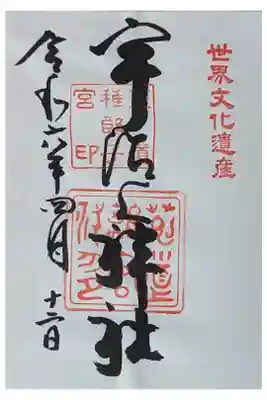 世界文化遺産
宇治上神社
稚郎
宮印
令和六年四月十二日